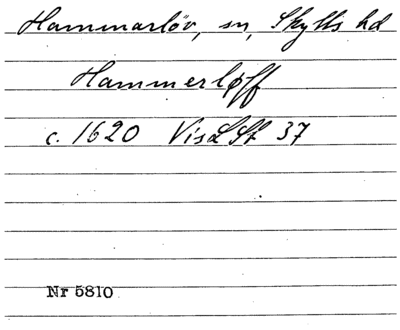 Hammarlöv, sn, Skytts hd
Hammerløff
c. 1620 VisLSt 37
Nr 5810